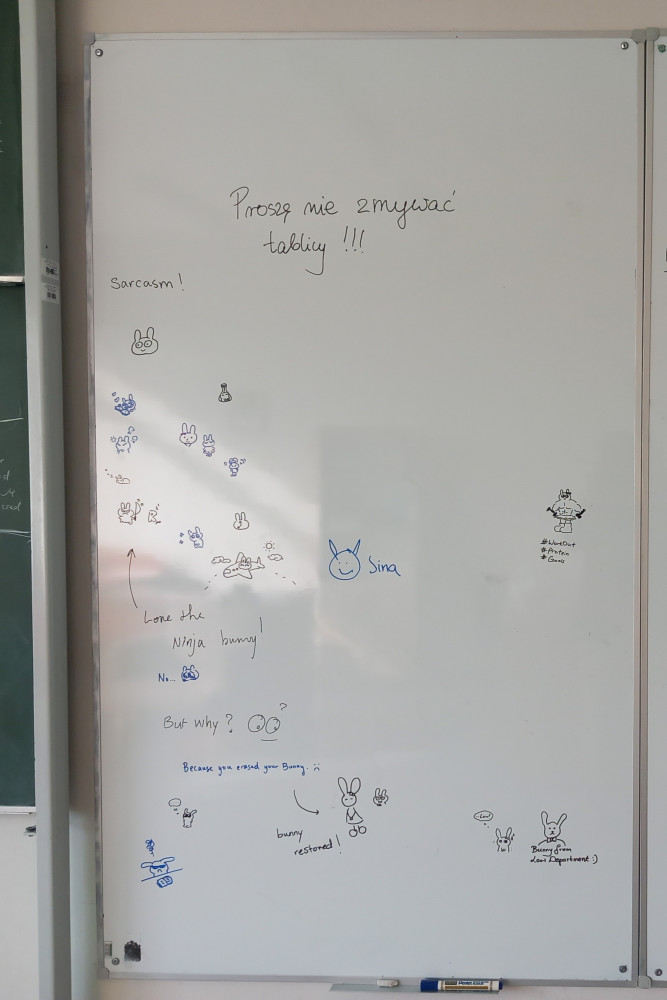 Proszę nie zmywać
tablicy !!!
Sarcasm!
Sina
#WorkOut
#Protein
#Gains
Love the
Ninja bunny!
No...
But why?
?
Because you erased your Bunny. :(
bunny
restored!
Bunny from
Law Department :)